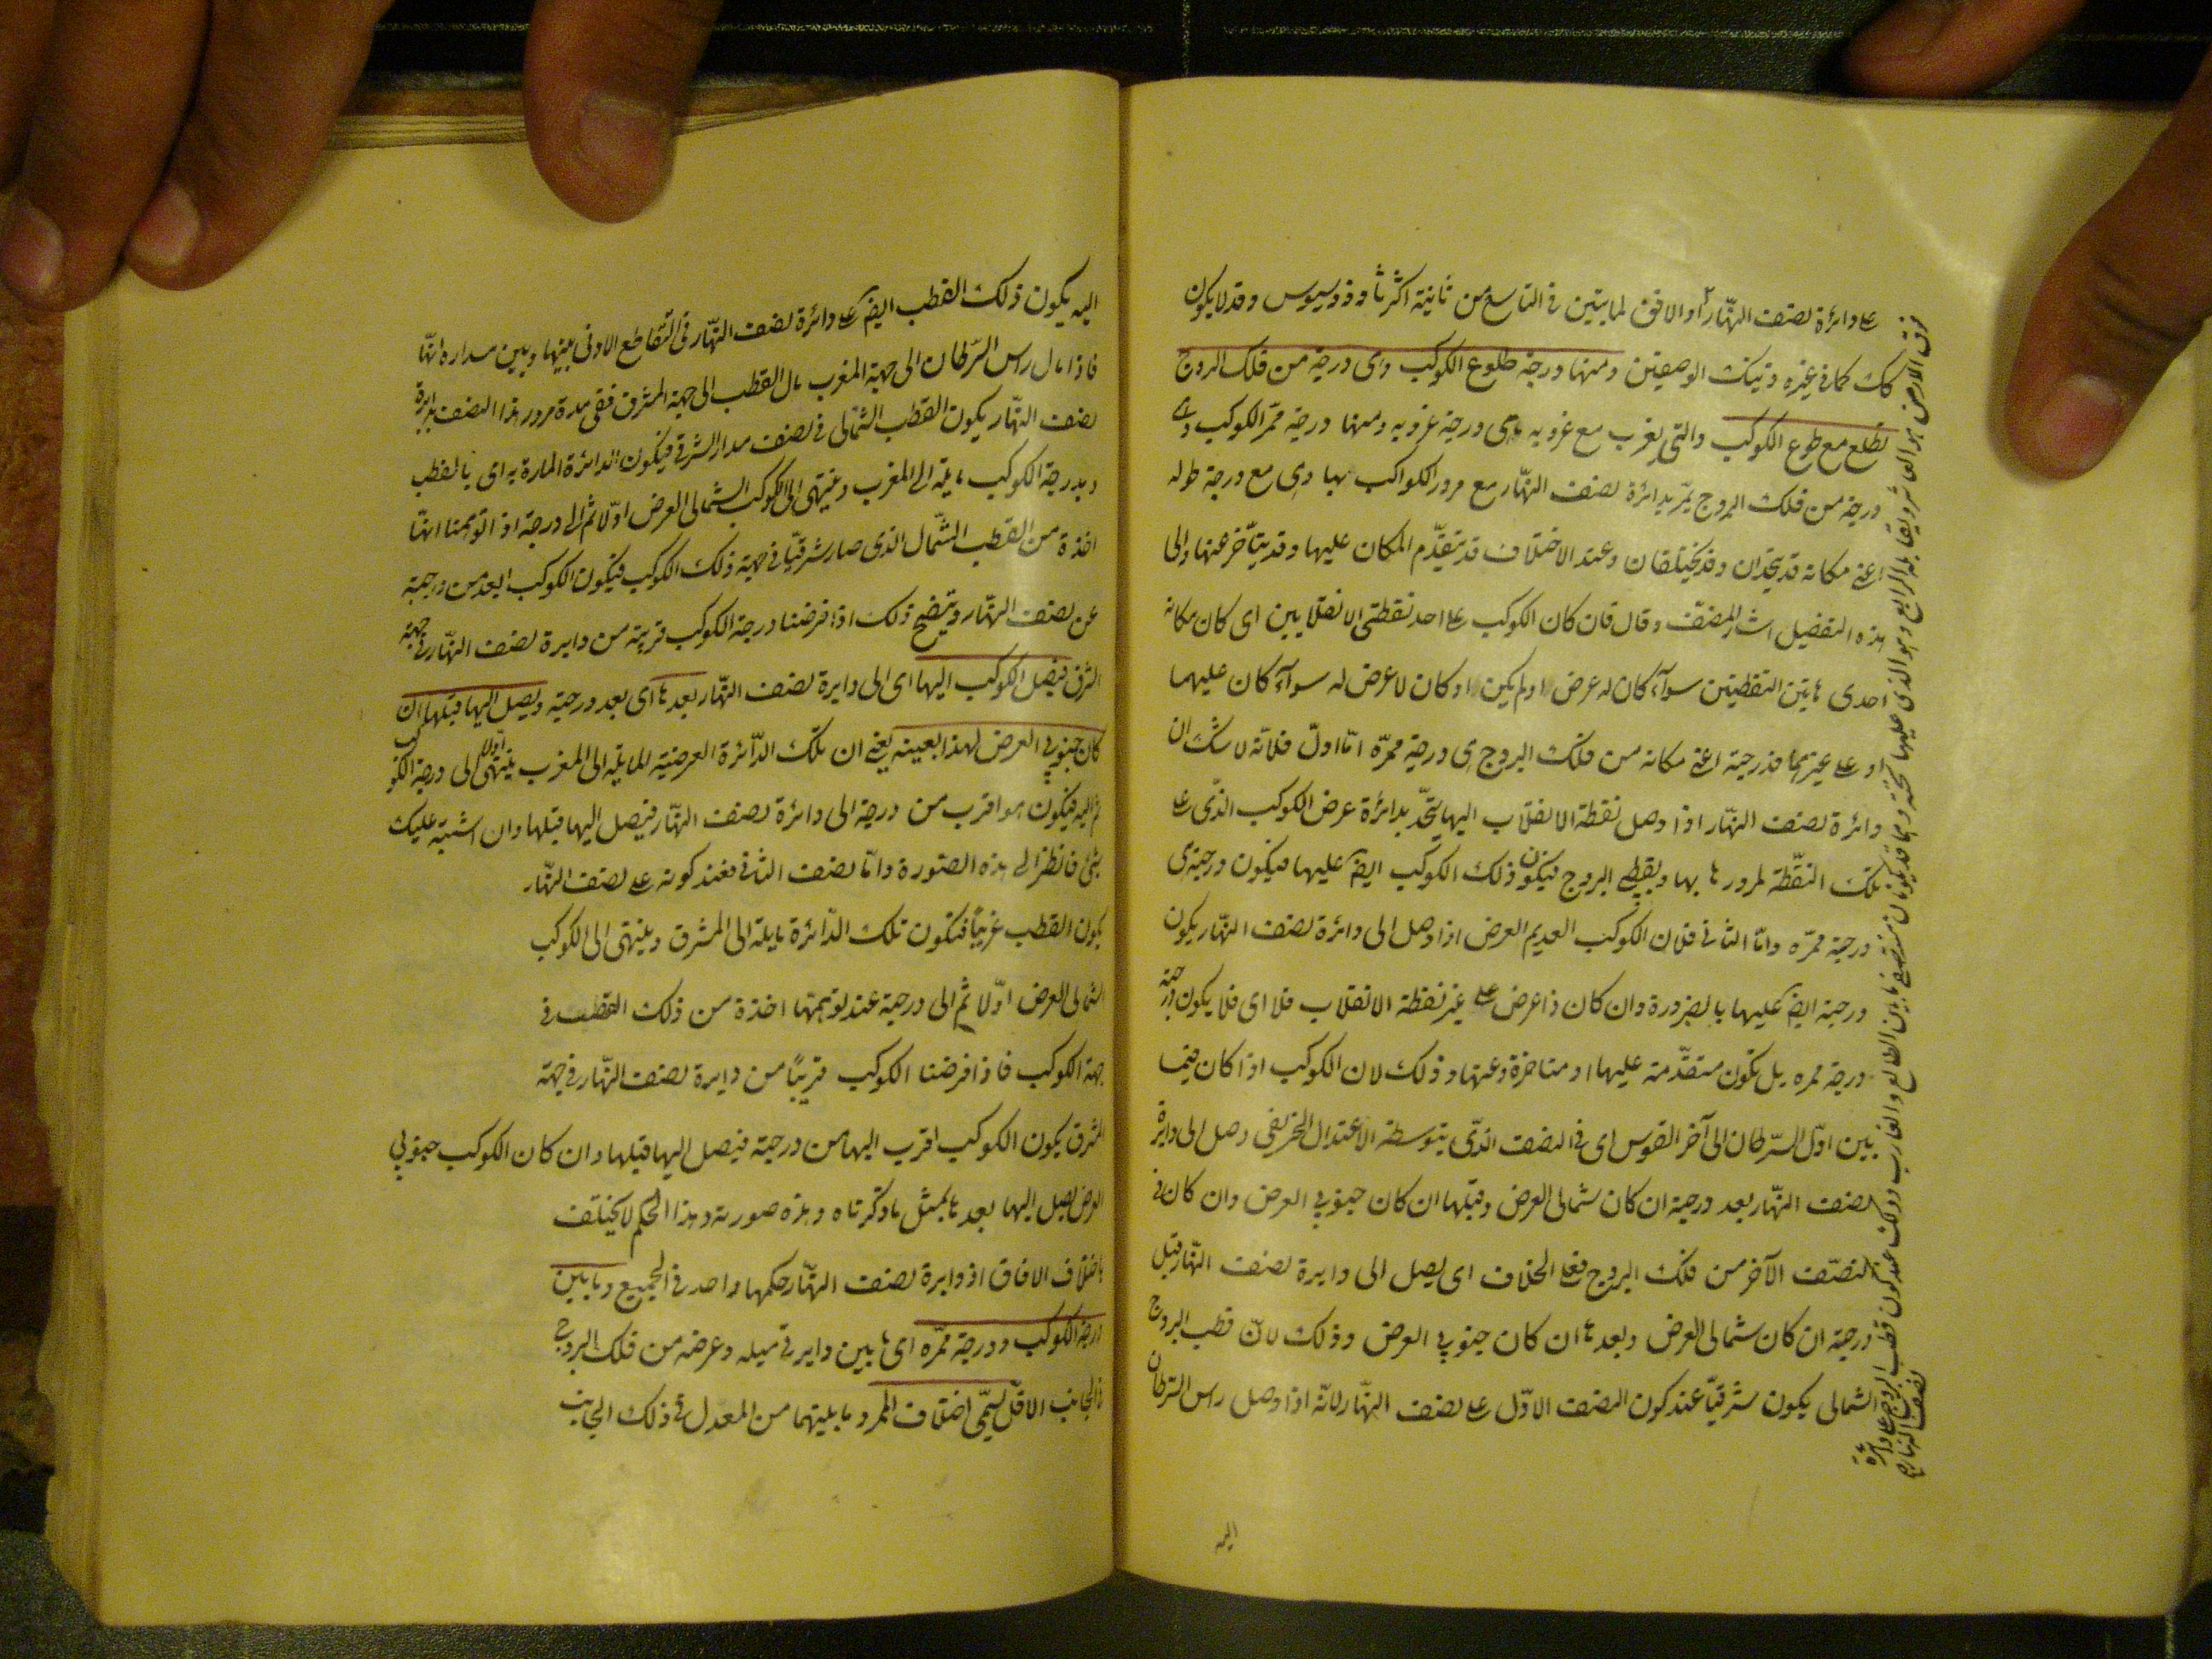 على دائرة نصف النهار او الافق لما يتبين فى التاسع من ثانية اكرثاوذوسيوس وقد لا يكون
كك كما فى غيره وتينك الوضعين ومنها درجة طلوع الكوكب وهى درجة من فلك البروج
تطلع مع طلوع الكوكب والتى يغرب مع غروبه هى درجة غروبه ومنها درجة ممر الكوكب وهى
درجة من فلك البروج يمر بدائرة نصف النهار مع مرور الكواكب بها وهى مع درجة طوله
اعنى مكانه قد يتحدان وقد يختلفان وعند الاختلاف قد يتقدم المكان عليها وقد يتأخر عنها والى
هذه التفصيل اشار المصنف وقال فان كان الكوكب على احد نقطتى الانقلابين اى كان مكانه
احدى هاتين النقطتين سوآء كان له عرض او لم يكن او كان لا عرض له سوآء كان عليهما
او على غيرهما فدرجته اعنى مكانه من فلك البروج هى درجة ممره اما اول فلانه لا شك ان
دائرة نصف النهار اذا وصل نقطة الانقلاب اليها يتحد بدائرة عرض الكوكب الذى على
تلك النقطة لمرورها بها وبقطبى البروج فيكون ذلك الكوكب ايضا عليها فيكون درجته هى
درجة ممره واما الثانى فلان الكوكب العديم العرض اذا وصل الى دائرة نصف النهار يكون
درجته ايضا عليها بالضرورة وان كان ذا عرض على غير نقطة الانقلاب فلا اى فلا يكون درجته
درجة ممره بل تكون متقدمة عليها او متاخرة وعنها وذلك لان الكوكب اذا كان فيما
بين اول السرطان الى آخر القوس اى فى النصف الذى يتوسطه الاعتدال الخريفى وصل الى دايرة
نصف النهار بعد درجته ان كان شمالى العرض وقبلها ان كان جنوبى العرض وان كان فى
النصف الآخر من فلك البروج فعلى الخلاف اى يصل الى دايرة نصف النهار قبل
درجته ان كان شمالى العرض وبعدها ان كان جنوبى العرض وذلك لان قطب البروج
الشمالى يكون شرقيا عند كون النصف الاول على نصف النهار لانه اذا وصل راس السرطان
اليه
فوق الارض هو العاشر ويقابله الرابع وهو الذى عليها تحته وهما قد يكونان منتصفى ما بين الطالع والغارب وذلك عند كون قطب البروج على دائرة
نصف النهار
اليه يكون ذلك القطب ايضا على دائرة نصف النهار فى التقاطع الادنى بينها وبين مداره انها
فاذا مال راس السرطان الى جهة المغرب مال القطب الى جهة المشرق ففى مدة مرور هذا النصف بدايرة
نصف النهار يكون القطب الشمالى فى نصف مدار الشرقى فيكون الدائرة المارة به اى بالقطب
وبدرجة الكوكب مايلة الى المغرب وينتهى الى الكوكب الشمالى العرض اولا ثم الى درجة اذ اتوهمنا انها
اخذة من القطب الشمالى الذى صار شرقيا فى جهة ذلك الكوكب فيكون الكوكب ابعد من درجته
عن نصف النهار ويتضح ذلك اذا فرضنا درجة الكوكب قريبة من دايرة نصف النهار فى جهة
الشرق فيصل الكوكب اليها اى الى دايرة نصف النهار بعدها اى بعد درجته ويصل اليها قبلها ان
كان جنوبى العرض لهذا بعينه يعنى ان تلك الدائرة العرضية المايلة الى المغرب ينتهى اولا الى درجة الكوكب
ثم اليه فيكون هو اقرب من درجة الى دائرة نصف النهار فيصل اليها قبلها وان اشتبه عليك
شئ فانظر الى هذه الصورة واما نصف الثانى فعند كونه على نصف النهار
يكون القطب غربيا فتكون تلك الدائرة مايلة الى المشرق وينتهى الى الكوكب
الشمالى العرض اولا ثم الى درجته عند توهمنا اخذة من ذلك القطب فى
جهة الكوكب فاذا فرضنا الكوكب قريبا من دايرة نصف النهار فى جهة
الشرق يكون الكوكب اقرب اليها من درجته فيصل اليها قبلها وان كان الكوكب جنوبى
العرض يصل اليها بعدها بمثل ما ذكرناه وهذه صورته وهذا الحكم لا يختلف
باختلاف الافاق اذ دايرة نصف النهار حكمها واحد فى الجميع وما بين
درجة الكوكب ودرجة ممره اى ما بين دايرتى ميله وعرضه من فلك البروج
فى الجانب الاقل يسمى اختلاف الممر وما بينهما من المعدل فى ذلك الجانب